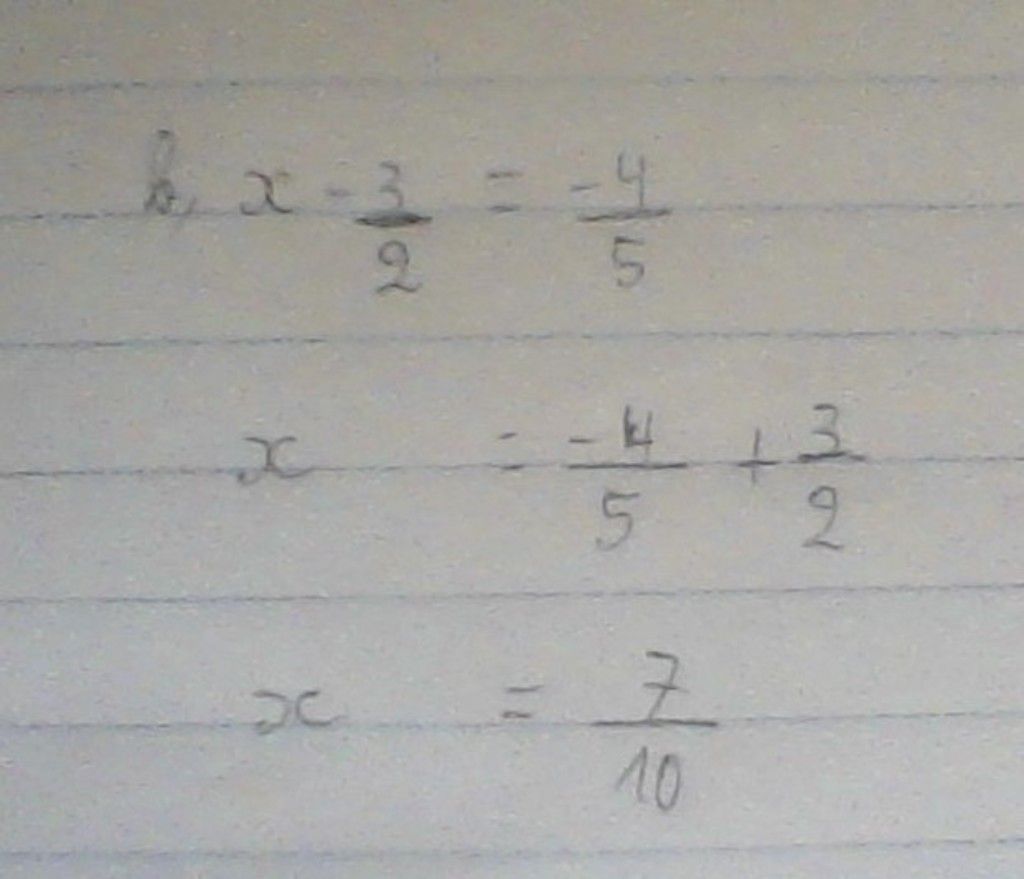 b, x - 3/2 = -4/5
x = -4/5 + 3/2
x = 7/10